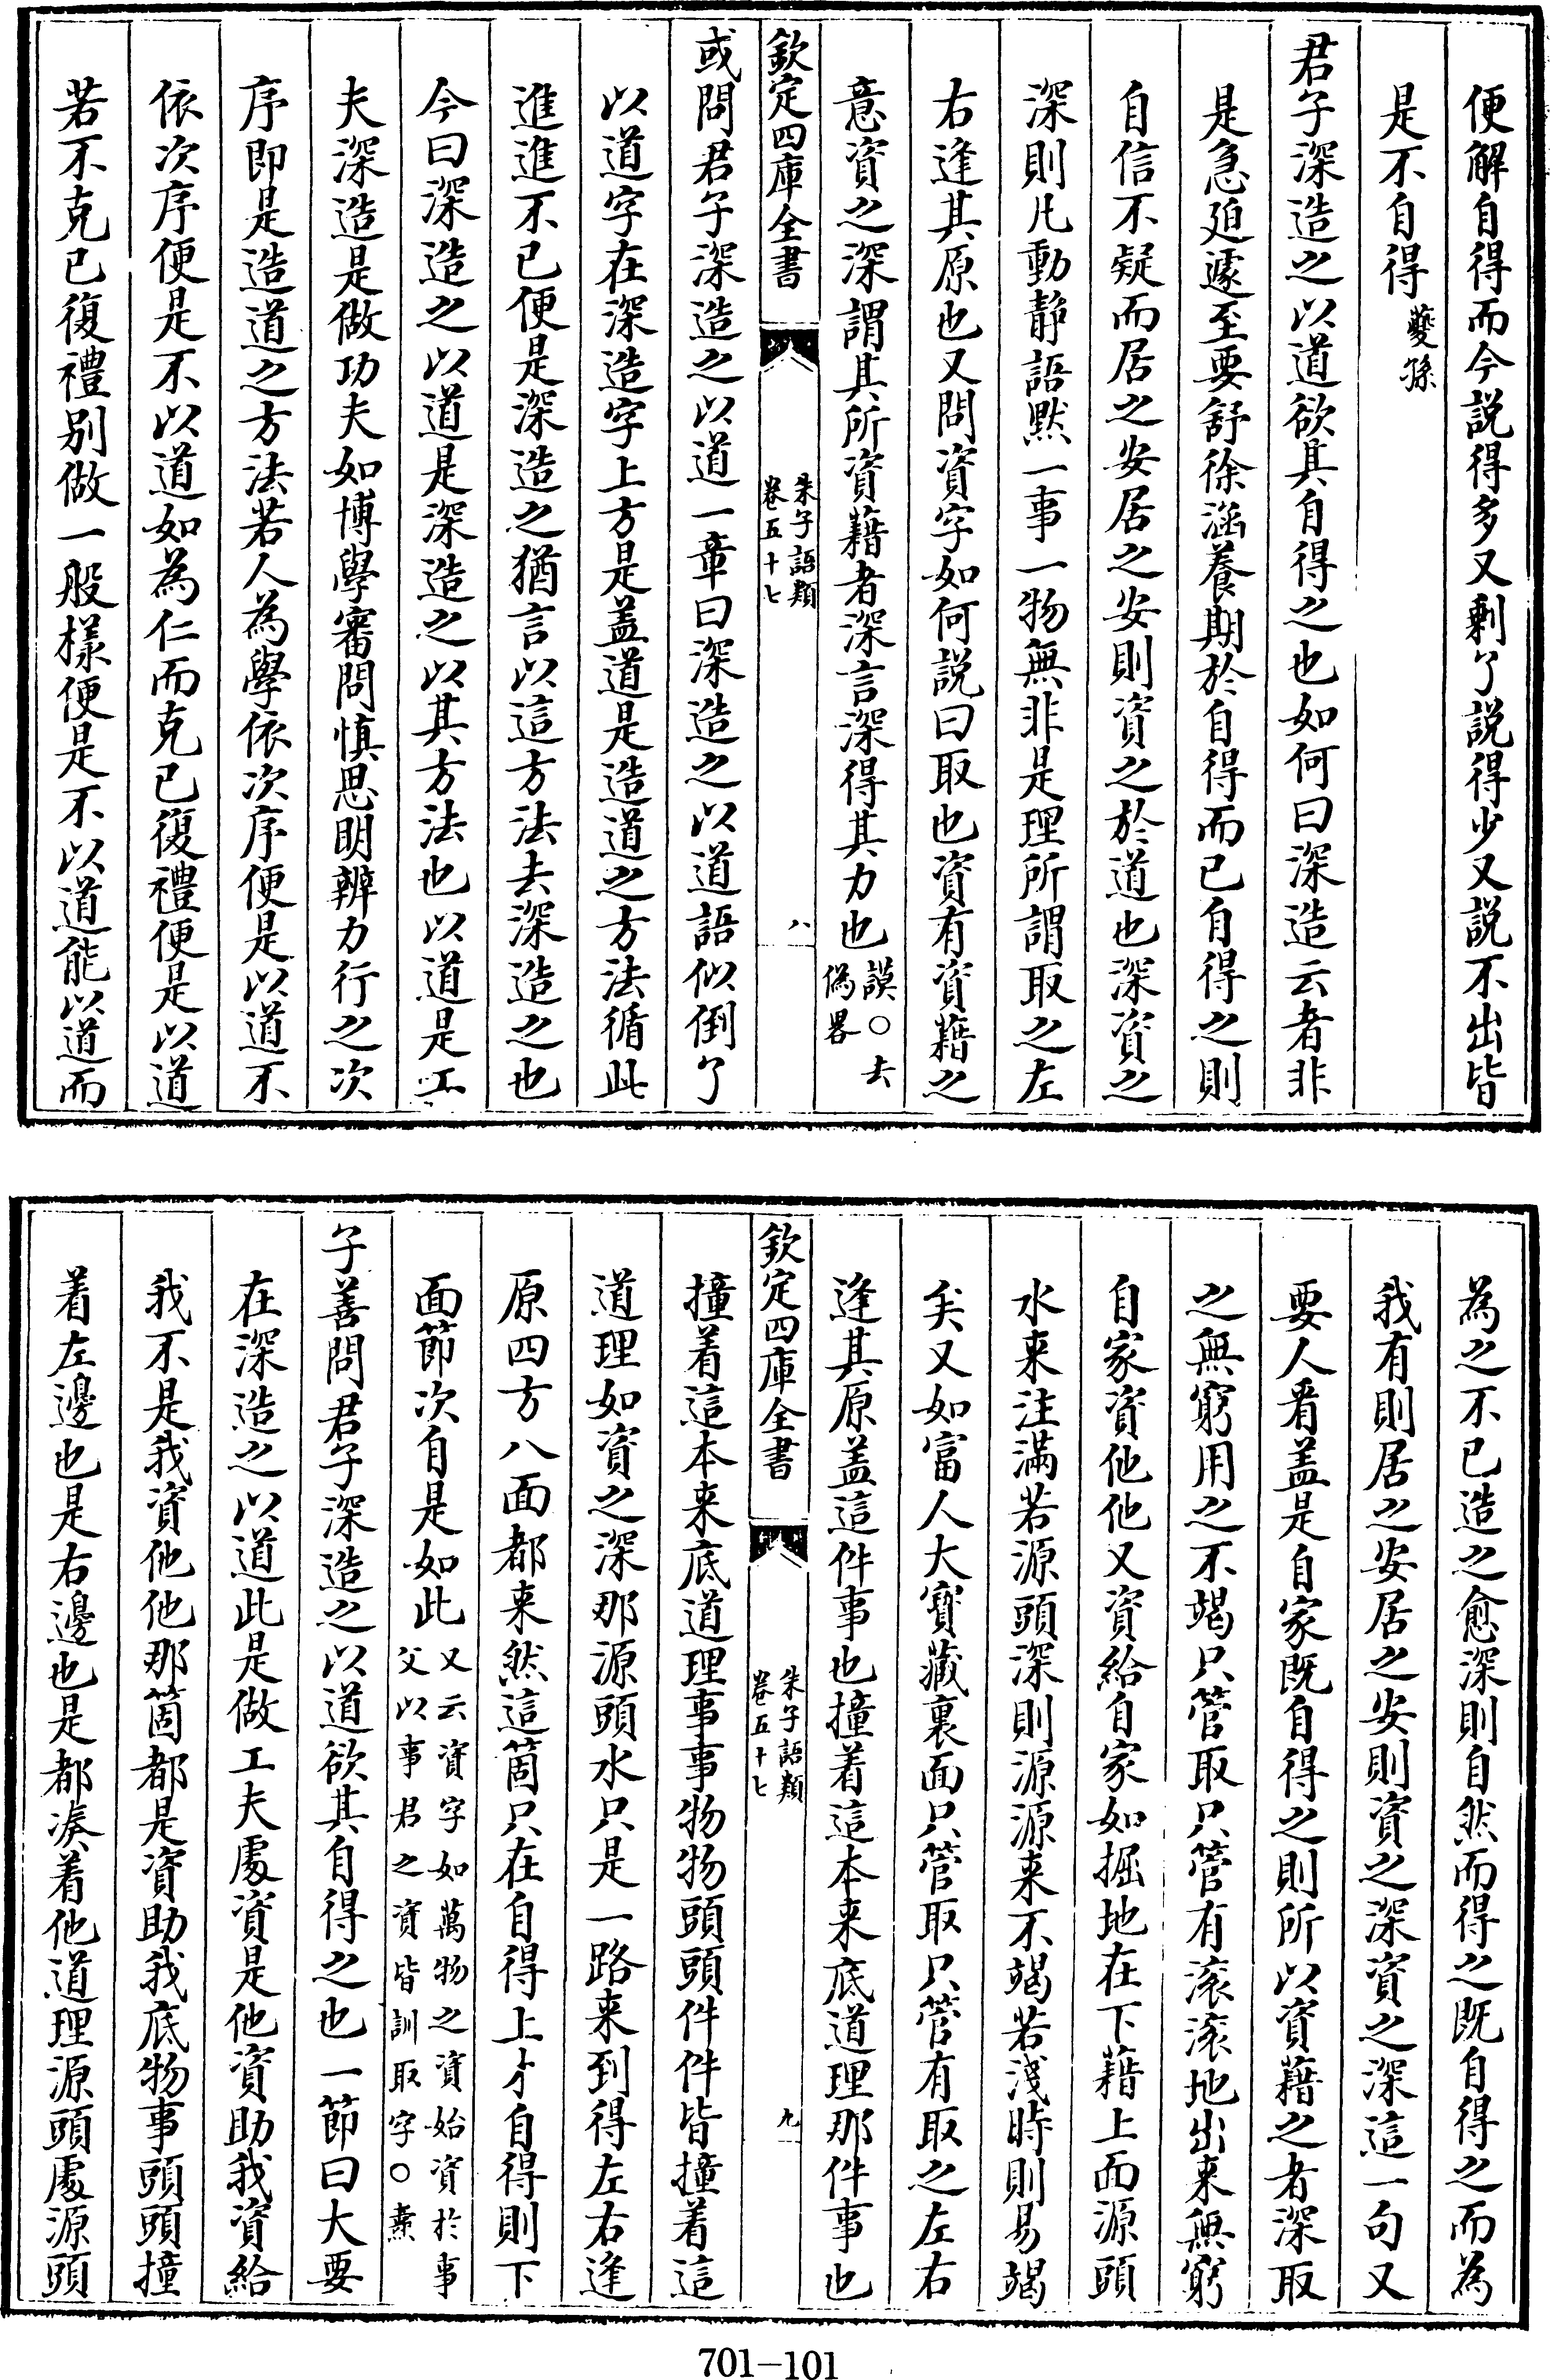 便解自得而今説得多又剰了説得少又説不出皆
是不自得蘷孫
君子深造之以道欲其自得之也如何曰深造云者非
是急廹遽至要舒徐涵養期於自得而已自得之則
自信不疑而居之安居之安則資之於道也深資之
深則凡動静語黙一事一物無非是理所謂取之左
右逢其原也又問資字如何説曰取也資有資藉之
意資之深謂其所資藉者深言深得其力也謨○去
偽畧
欽定四庫全書
朱子語類
卷五十七
八
或問君子深造之以道一章曰深造之以道語似倒了
以道字在深造字上方是盖道是造道之方法循此
進進不已便是深造之猶言以這方法去深造之也
今曰深造之以道是深造之以其方法也以道是工
夫深造是做功夫如博學審問慎思明辨力行之次
序即是造道之方法若人為學依次序便是以道不
依次序便是不以道如為仁而克已復禮便是以道
若不克已復禮别做一般様便是不以道能以道而
為之不已造之愈深則自然而得之既自得之而為
我有則居之安居之安則資之深資之深這一句又
要人看盖是自家既自得之則所以資藉之者深取
之無窮用之不竭只管取只管有滚滚地出来無窮
自家資他他又資給自家如掘地在下藉上面源頭
水来注滿若源頭深則源源来不竭若淺時則易竭
矣又如富人大寳藏裏面只管取只管有取之左右
逢其原盖這件事也撞着這本来底道理那件事也
欽定四庫全書
朱子語類
卷五十七
九
撞着這本来底道理事事物物頭頭件件皆撞着這
道理如資之深那源頭水只是一路来到得左右逢
原四方八面都来然這箇只在自得上才自得則下
面節次自是如此又云資字如萬物之資始資於事
父以事君之資皆訓取字○燾
子善問君子深造之以道欲其自得之也一節曰大要
在深造之以道此是做工夫處資是他資助我資給
我不是我資他他那箇都是資助我底物事頭頭撞
着左邊也是右邊也是都凑着他道理源頭處源頭
701—101